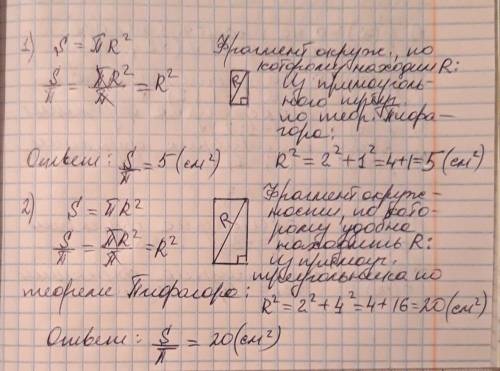 1) S = πR²
S/π = πR²/π = R²
Фрагмент окруж., по
которому находим R:
R
из прямоуголь-
ного треуг.
по теор. Пифа-
гора:
R² = 2² + 1² = 4+1 = 5 (см²)
Ответ: S/π = 5 (см²)
2) S = πR²
S/π = πR²/π = R²
R
Фрагмент окруж-
ности, по кото-
рому удобно
находить R:
из прямоуг.
треугольника по
теореме Пифагора:
R² = 2² + 4² = 4 + 16 = 20 (см²)
Ответ: S/π = 20 (см²)